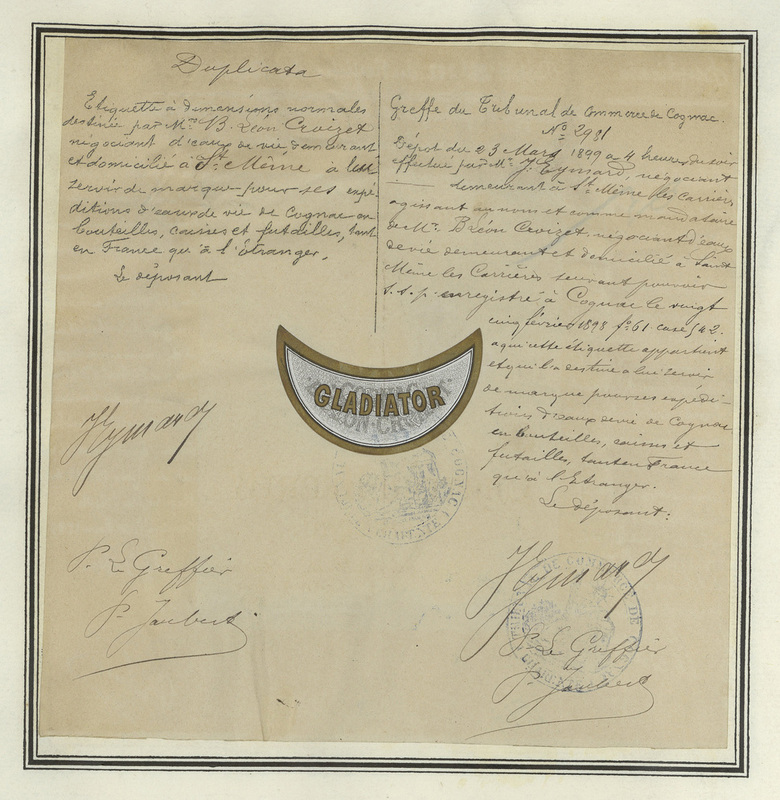 Duplicata
Etiquette à dimensions normales
destinée par Mr. B. Léon Croizet
négociant d'eaux de vie demeurant
et domicilié à St. Même à lui
servir de marque pour ses expé-
ditions d'eaux de vie de Cognac en
bouteilles, caisses et futailles, tant
en France qu'à l'Etranger.
Le déposant
Hymard
P. Le Greffier
P. Jaubert
Greffe du Tribunal de Commerce de Cognac.
No. 2981
Dépôt du 23 Mars 1899 à 4 heures du soir
effectué par Mr. J. Eymard, négociant
demeurant à St. Même les Carrières
agissant au nom et comme mandataire
de Mr. B. Léon Croizet, négociant d'eaux
de vie demeurant et domicilié à Saint
Même les Carrières suivant pouvoir
s.s.p. enregistré à Cognac le vingt
cinq février 1898 fo. 61 case
a qui cette étiquette appartient
et qu'il a destiné a lui servir
de marque pour ses expédi-
tions d'eaux de vie de Cognac
en bouteilles, caisses et
futailles, tant en France
qu'à l'Etranger.
Le déposant:
GLADIATOR
P. Le Greffier
P. Jaubert